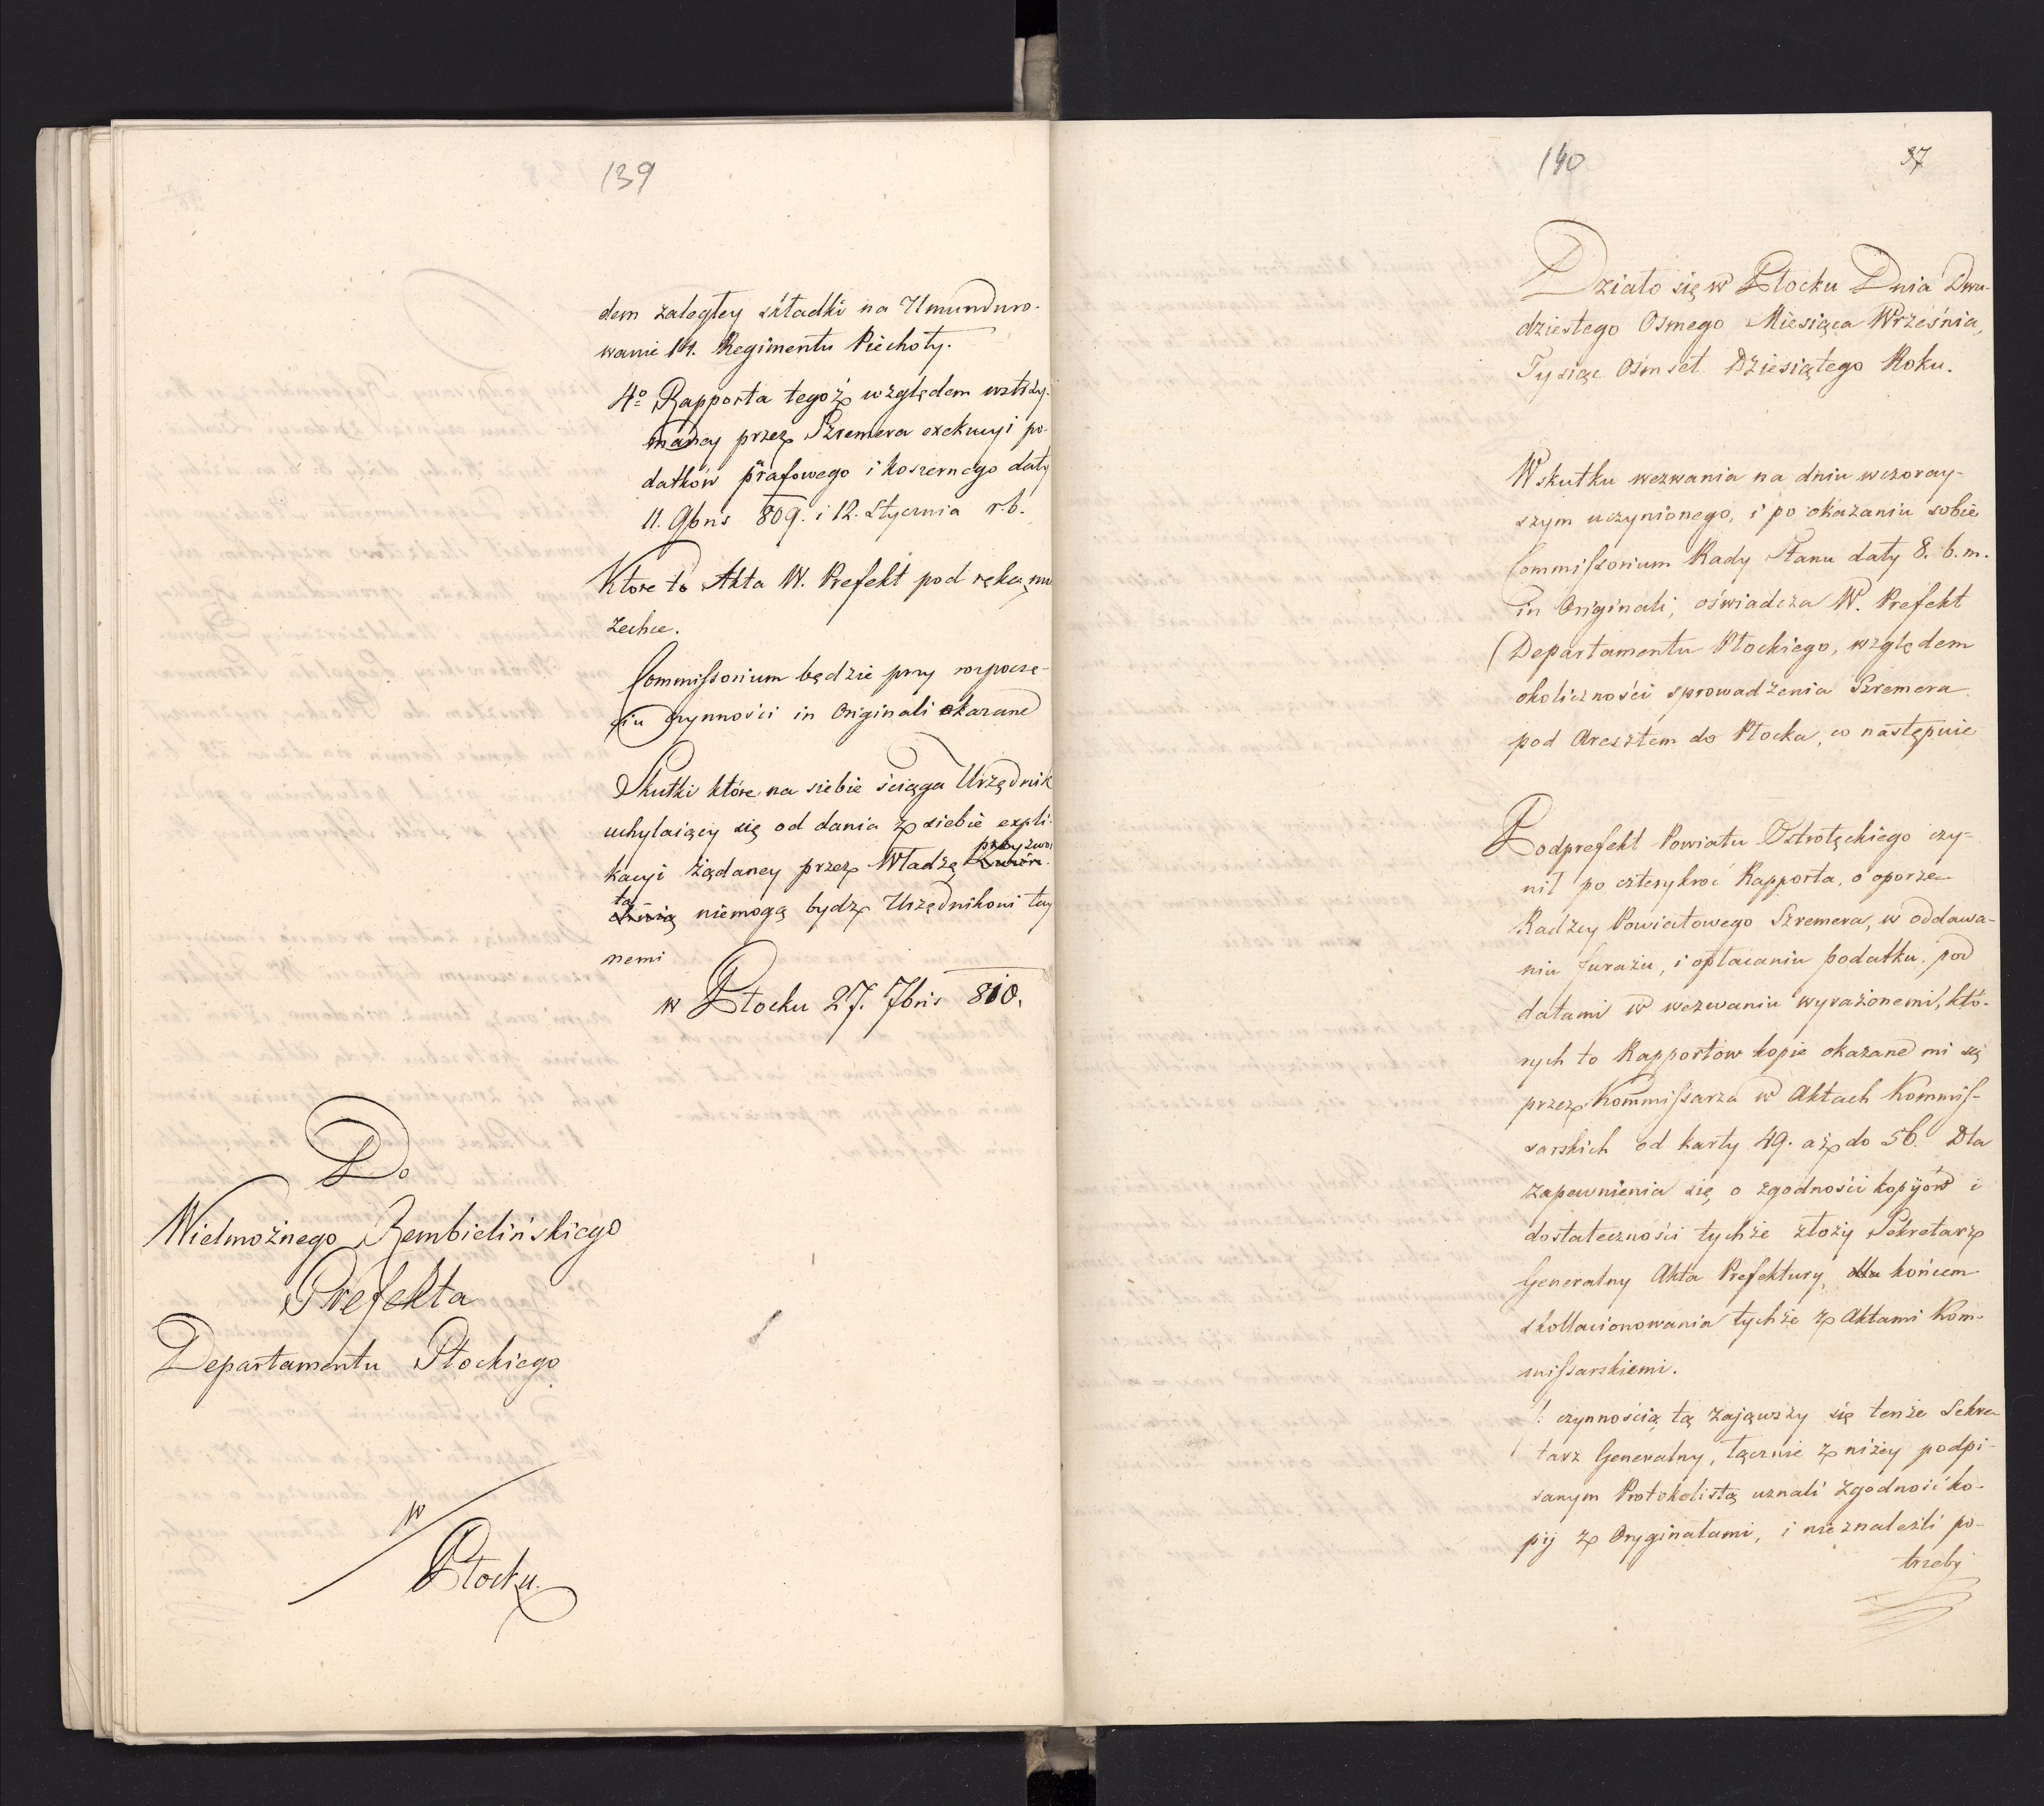 139
dem zaległey składki na Umunduro-
wanie 14. Regimentu Piechoty.
4o Rapporta tegoż względem wstrzy-
maney przez Szremera exekucyi po-
datków prafowego i koszernego daty
11. 9bris 809. i 12. Stycznia r.b.
Które to Akta W. Prefekt pod ręką mu
zechce.
Commissorium będzie przy rozpoczę-
ciu czynności in Originali okazane
Skutki które na siebie ściąga Urzędnik
uchylaiący się od dania z siebie expli-
kacyi żądaney przez Władzę przyzwoi
tą niemogą bydź Urzędnikowi tay
nemi
w Płocku 27. 7bris 810.
Do
Wielmożnego Rembielińskiego
Prefekta
Departamentu Płockiego
w
Płocku.
140
37
Działo się w Płocku Dnia Dwu-
dziestego Osmego Miesiąca Września,
Tysiąc Ośmset Dziesiątego Roku.
W skutku wezwania na dniu wczoray-
szym uczynionego, i po okazaniu sobie
Commissorium Rady Stanu daty 8. b.m.
in Originali, oświadcza W. Prefekt
Departamentu Płockiego, względem
okoliczności sprowadzenia Szremera
pod Aresztem do Płocka, co następuie
Podprefekt Powiatu Ostrołęckiego czy-
nił po czterykroć Rapporta, o oporze
Radzcy Powiatowego Szremera, w oddawa-
niu furażu, i opłacaniu podatku, pod
datami w wezwaniu wyrażonemi, któ-
rych to Rapportów kopie okazane mi są
przez Kommissarza w Aktach Kommis-
sarskich od karty 49. aż do 56. Dla
zapewnienia się o zgodności kopijów i
dostateczności tychże złoży Sekretarz
Generalny Akta Prefektury, dla końcem
skollacionowania tychże z Aktami Kom-
missarskiemi.
/: czynnością tą zająwszy się tenże Sekre-
tarz Generalny, łącznie z niżey podpi-
sanym Protokolistą uznali zgodność ko-
pij z Oryginałami, i nieznaleźli po-
trzeby